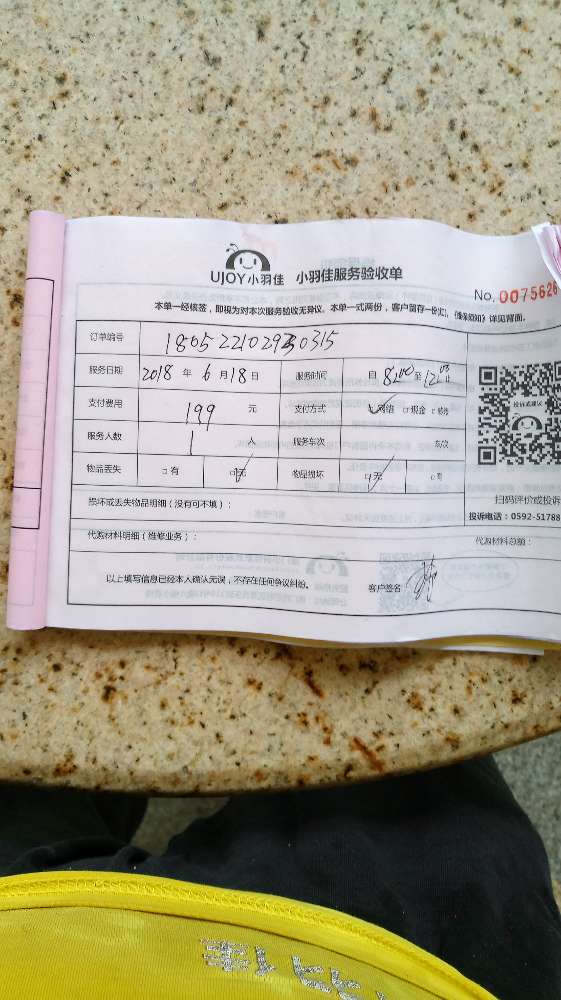 UJOY小羽佳 小羽佳服务验收单
No. 0075626
本单一经核签，即视为对本次服务验收无异议。本单一式两份，客户留存一份
订单编号
服务日期 2018 年 6 月 18 日 服务时间 自 8:00 至
支付费用 199 元 支付方式 网络 □现金
服务人数 1 人 服务车次 车次
物品丢失 □有 □无 物品损坏 □无 □有
损坏或丢失物品明细（没有可不填）：
扫码评价或投诉
投诉电话：0592-51788
代购材料明细（维修业务）： 代购材料总额：
以上填写信息已经本人确认无误，不存在任何争议纠纷。 客户签名：